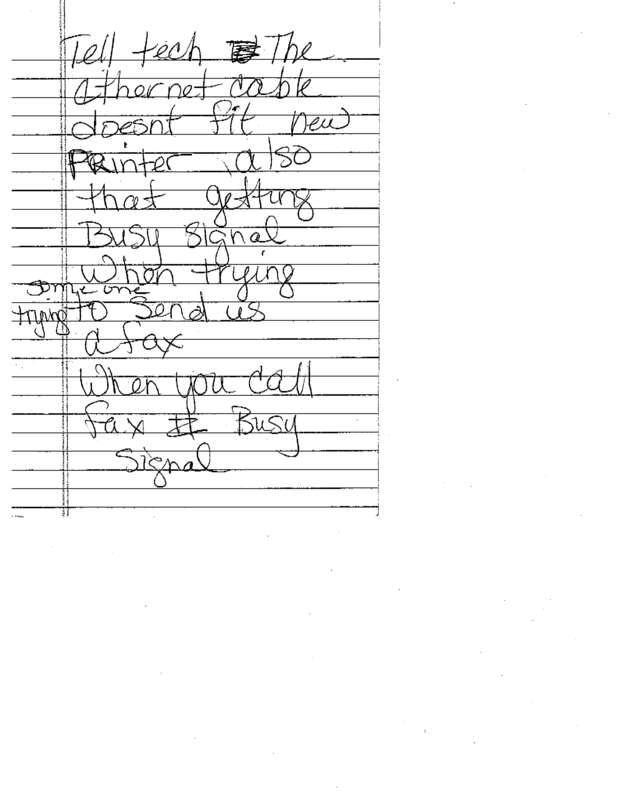 Tell tech The
ethernet cable
doesnt fit new
PRinter also
that getting
Busy signal
When trying
someone
trying to Send us
a fax
When you call
fax # Busy
Signal